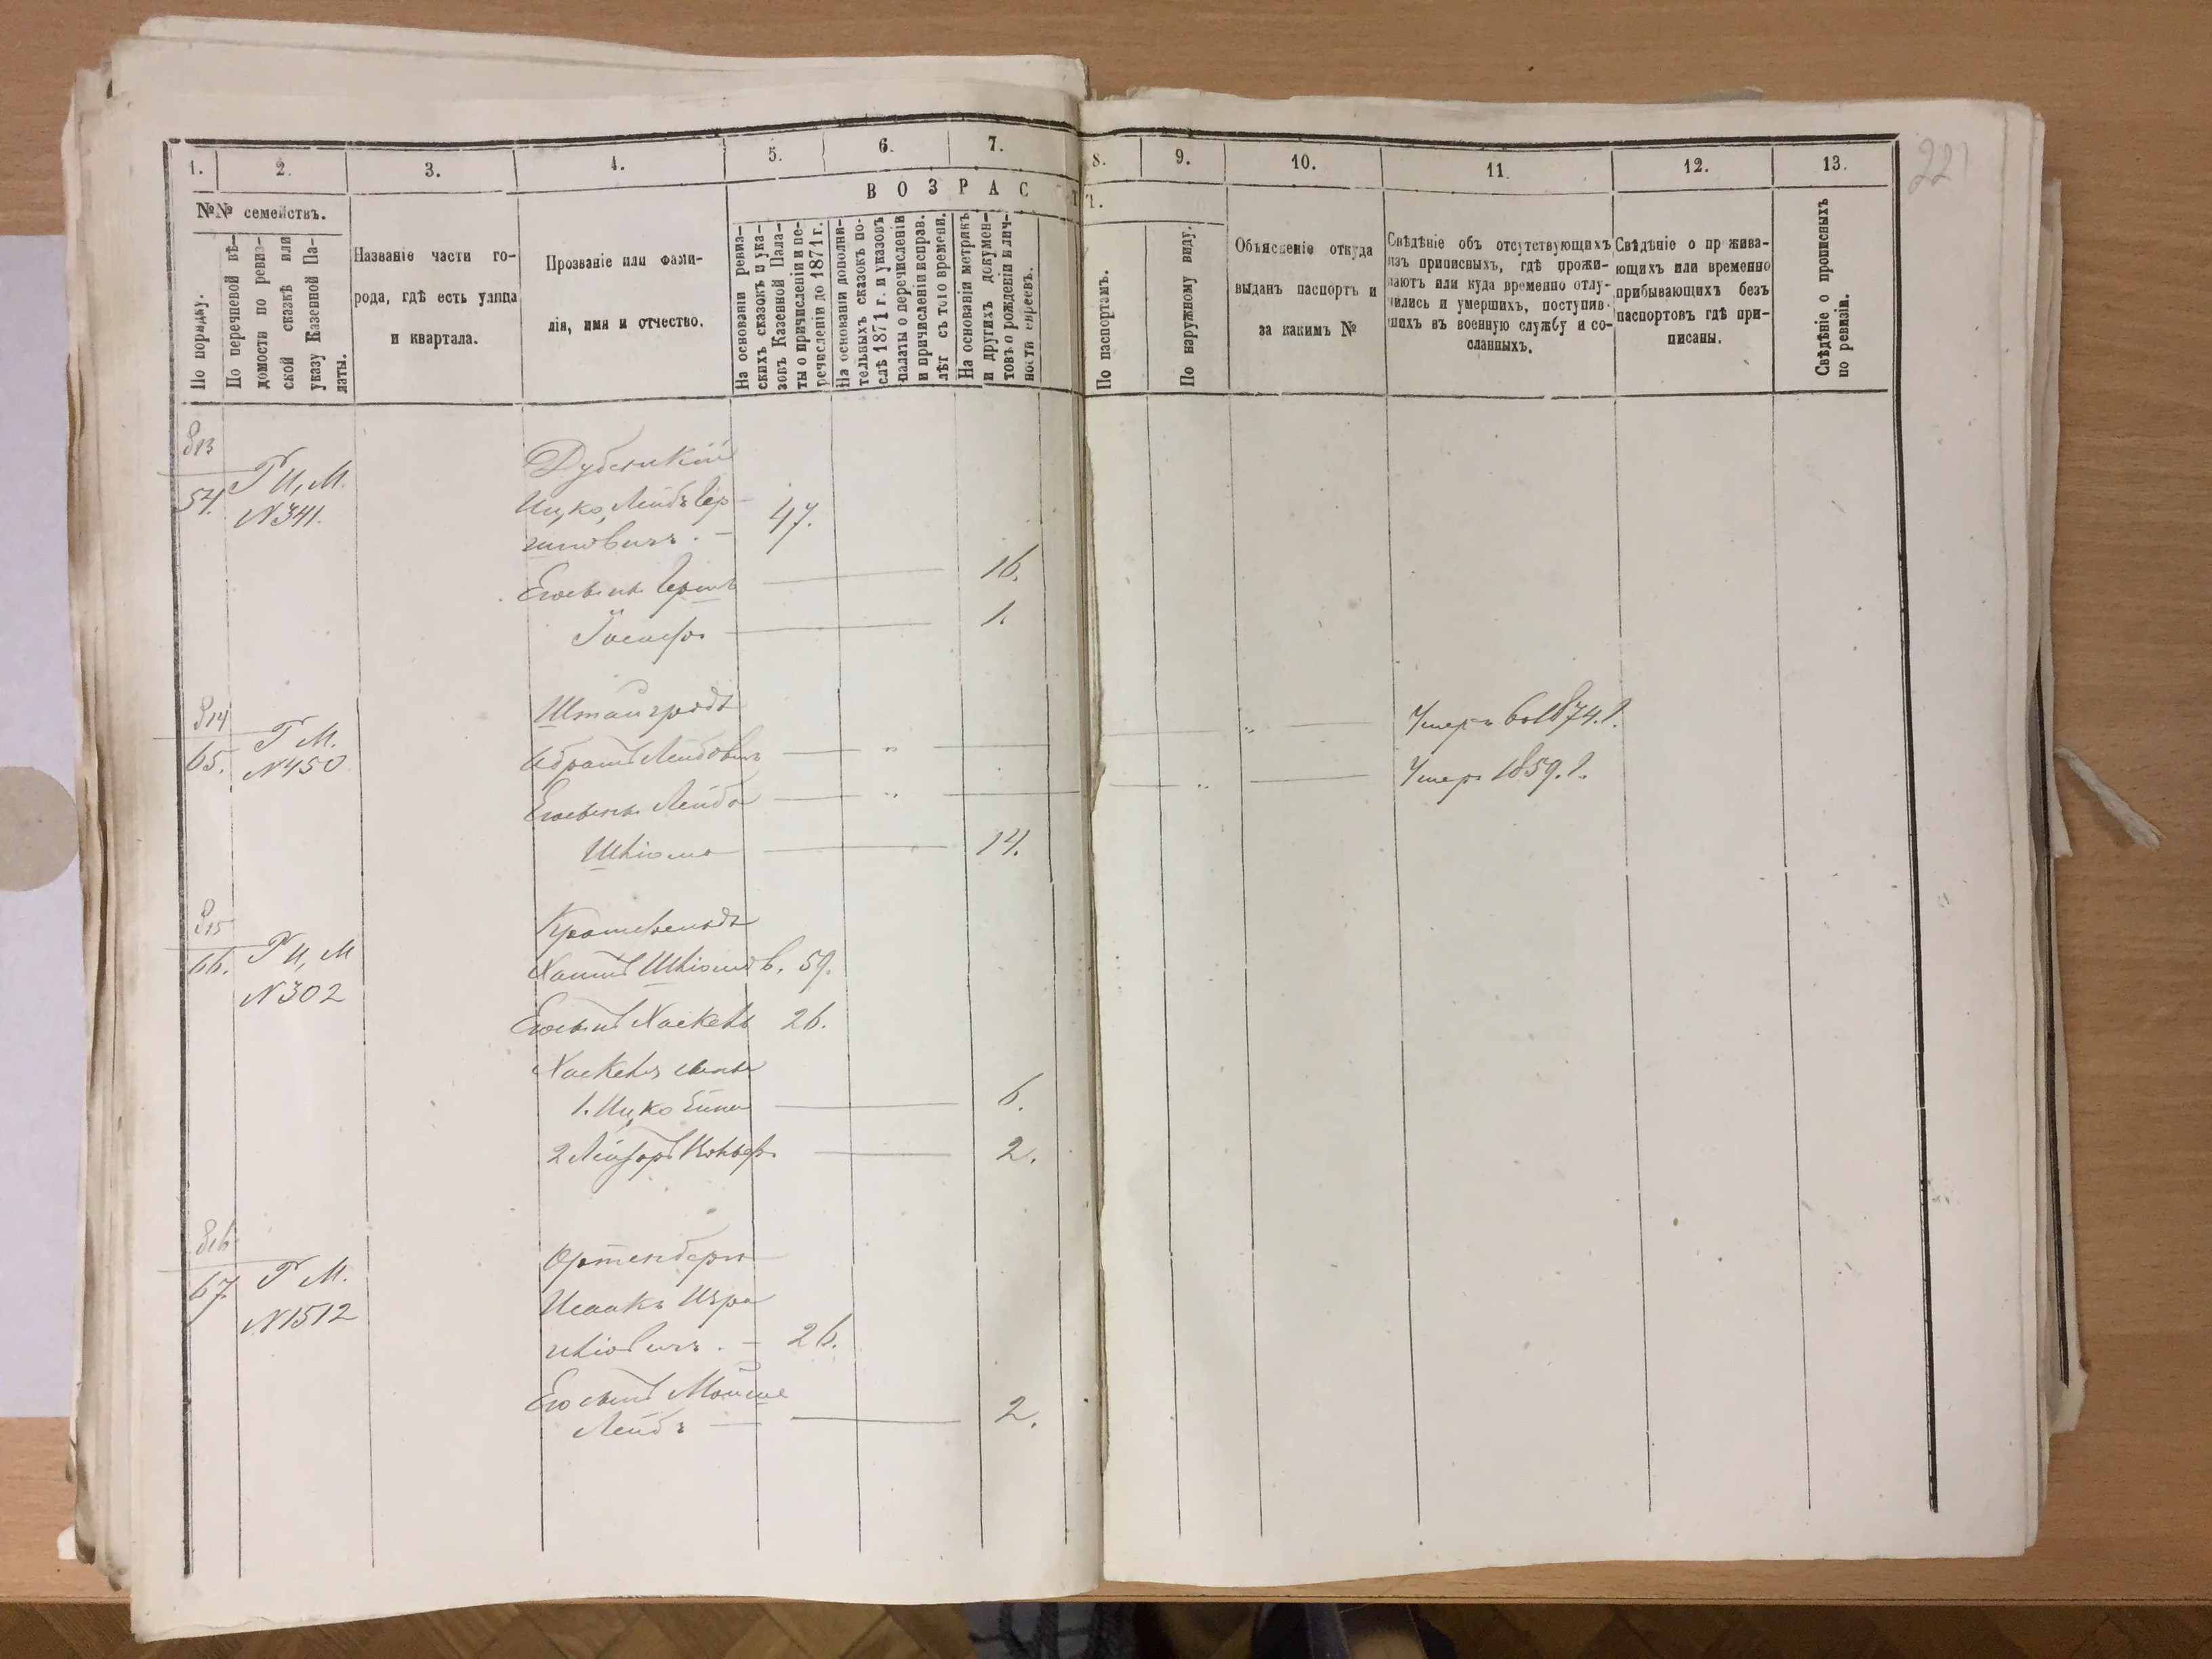 1. 2. 3. 4. 5. 6. 7. 8. 9. 10. 11. 12. 13.
221
ВОЗРАСТ.
№№ семействъ.
По порядку.
По перечневой вѣ-
домости по ревиз-
ской сказкѣ или
указу Казенной Па-
латы.
Названіе части го-
рода, гдѣ есть улица
и квартала.
Прозваніе или фами-
лія, имя и отчество.
На основаніи ревиз-
скихъ сказокъ и ука-
зовъ Казенной Пала-
ты о причисленіи и пе-
речисленіи до 1871 г.
На основаніи дополни-
тельныхъ сказокъ по-
слѣ 1871 г. и указовъ
палаты о перечисленіи
и причисленіи исправ.
лѣт съ того времени.
На основаніи метрикъ
и другихъ докумен-
товъ о рожденіи и лич-
ности евреевъ.
По паспортамъ.
По наружному виду.
Объясненіе откуда
выданъ паспортъ и
за какимъ №
Свѣдѣніе объ отсутствующихъ
изъ приписныхъ, гдѣ прожи-
ваютъ или куда временно отлу-
чились и умершихъ, поступив-
шихъ въ военную службу и со-
сланныхъ.
Свѣдѣніе о прожива-
ющихъ или временно
прибывающихъ безъ
паспортовъ гдѣ при-
писаны.
Свѣдѣніе о прописныхъ
по ревизіи.
813
Р И, М.
54.
N 341.
Дубецкій
Ицко Лейбъ Гер-
шковичъ. - 47.
Его сынъ Гершъ 16.
Іосифъ 1.
814
Р М.
65. N 450
Штангродъ
Абрамъ Лейбовичъ Умеръ 1874. г.
Его сынъ Лейба Умеръ 1859. г.
Шліома 14.
815
66. Р И, М
N 302
Хаимъ Шліомов. 59.
Его сынъ Хаскель 26.
Хаскеля сыны
1. Ицко 6.
2 Лейзоръ 2.
816
67. Р М.
N 1512
Ортенбергъ
Исаакъ Изра
иліовичъ. - 26.
Его сынъ Мойше
Лейбъ 2.